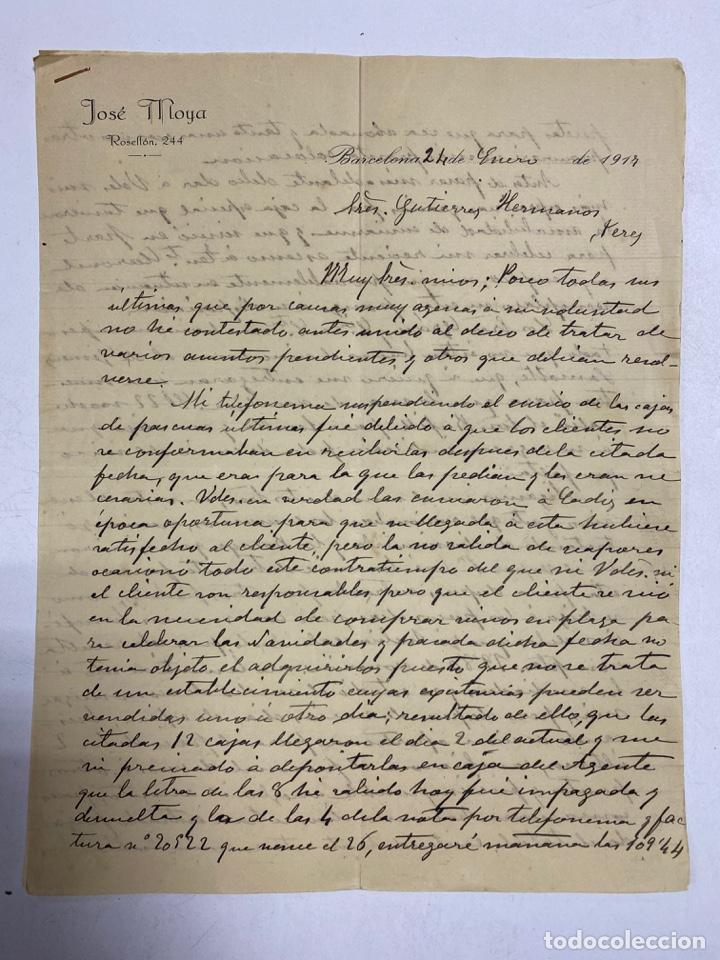 José Moya
Rosellón, 244
Barcelona 24 de Enero de 1917
Sres. Gutierres Hermanos
Xeres
Muy Sres. mios; Poseo todas sus
últimas que por causas muy agenas á mi voluntad
no he contestado antes unido al deseo de tratar de
varios asuntos pendientes y otros que debian resol-
verse.
Mi telefonema suspendiendo el envio de las cajas
de pascuas últimas fue debido á que los clientes no
se conformaban en recibirlas despues de la citada
fecha, que eras para la que las pedian y les eran ne
cesarias. Vdes. en verdad las enviaron á Cadiz en
época oportuna para que su llegada á esta hubiese
satisfecho al cliente, pero la no salida de vapores
ocasionó todo este contratiempo del que ni Vdes. ni
el cliente son responsables pero que el cliente se vió
en la necesidad de comprar vinos en plaza pa
ra celebrar las Navidades y pasada dicha fecha no
tenia objeto el adquirirlos puesto que no se trata
de un establecimiento cuyas existencias pueden ser
vendidas uno ú otro dia; resultado de ello, que las
citadas 12 cajas llegaron el dia 2 del actual y me
vi precisado á depositarlas en casa del Agente
que la letra de las 8 he sabido hoy fué impagada y
devuelta y la de las 4 de la nota por telefonema y fac
tura nº 20522 que vence el 26, entregaré mañana las 109'44
todocoleccion
todocoleccion.net